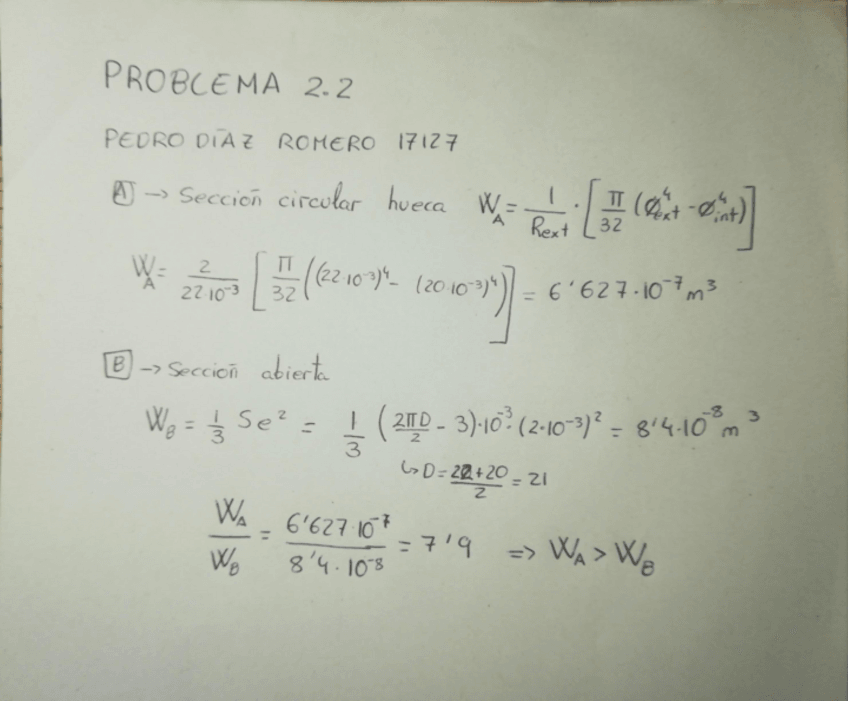 PROBLEMA 2.2
PEDRO DÍAZ ROMERO 17127
A → Sección circular hueca W_A = 1/R_ext · [π/32 (Ø⁴_ext - Ø⁴_int)]
W_A = 2/22·10⁻³ [π/32 ((22·10⁻³)⁴ - (20·10⁻³)⁴)] = 6'627·10⁻⁷ m³
B → Sección abierta
W_B = 1/3 S e² = 1/3 (2πD/2 - 3)·10⁻³·(2·10⁻³)² = 8'4·10⁻⁸ m³
↳ D = 22+20/2 = 21
W_A/W_B = 6'627·10⁻⁷/8'4·10⁻⁸ = 7'9 ⇒ W_A > W_B